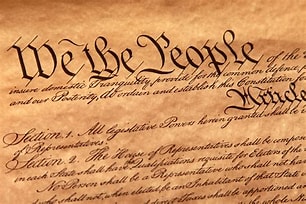 We the People of the
insure domestic Tranquility, provide for the common defence,
and our Posterity, do ordain and establish this Constitution
Article
Section. 1. All legislative Powers herein granted shall be
of Representatives.
Section. 2. The House of Representatives shall be comp
in each State shall have the Qualifications requisite for Electors of the
No Person shall be a Representative who shall not have
and who shall not, when elected, be an Inhabitant of that State
Taxes shall be apportioned